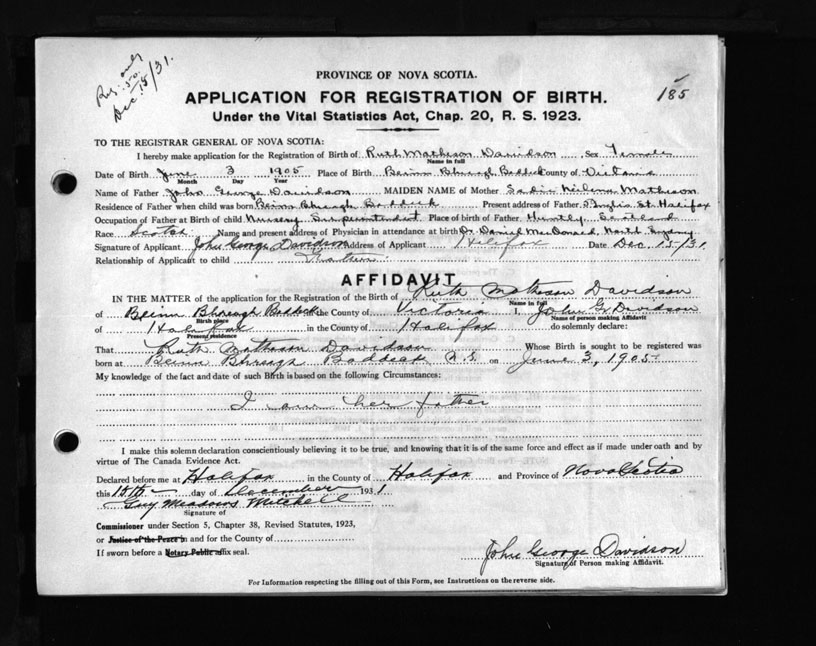 Reg. only
Dec. 15/31.
185
PROVINCE OF NOVA SCOTIA.
APPLICATION FOR REGISTRATION OF BIRTH.
Under the Vital Statistics Act, Chap. 20, R. S. 1923.
TO THE REGISTRAR GENERAL OF NOVA SCOTIA:
I hereby make application for the Registration of Birth of Ruth Matheson Davidson Sex Female
Name in full
Date of Birth June 3 1905 Place of Birth Beinn Bhreagh Baddeck County of Victoria
Month Day Year
Name of Father John George Davidson MAIDEN NAME of Mother Sadie Matheson
Residence of Father when child was born Beinn Bhreagh Baddeck Present address of Father Inglis St. Halifax
Occupation of Father at Birth of child Nursery Superintendent Place of birth of Father Huntly, Scotland
Race Scotch Name and present address of Physician in attendance at birth Dr. Daniel MacDonald, North Sydney
Signature of Applicant John George Davidson Address of Applicant Halifax Date Dec. 15/31.
Relationship of Applicant to child Father
AFFIDAVIT
IN THE MATTER of the application for the Registration of the Birth of Ruth Matheson Davidson
Name in full
of Beinn Bhreagh Baddeck in the County of Victoria I, John G. Davidson
Birth place Name of person making Affidavit
of Halifax in the County of Halifax do solemnly declare:
Present residence
That Ruth Matheson Davidson Whose Birth is sought to be registered was
born at Beinn Bhreagh Baddeck N.S. on June 3, 1905
My knowledge of the fact and date of such Birth is based on the following Circumstances:
I am her father
I make this solemn declaration conscientiously believing it to be true, and knowing that it is of the same force and effect as if made under oath and by
virtue of The Canada Evidence Act.
Declared before me at Halifax in the County of Halifax and Province of Nova Scotia
this 15th day of December 1931.
Guy Meadows Mitchell
Signature of
Commissioner under Section 5, Chapter 38, Revised Statutes, 1923,
or Justice of the Peace in and for the County of
If sworn before a Notary Public affix seal.
John George Davidson
Signature of Person making Affidavit.
For Information respecting the filling out of this Form, see Instructions on the reverse side.